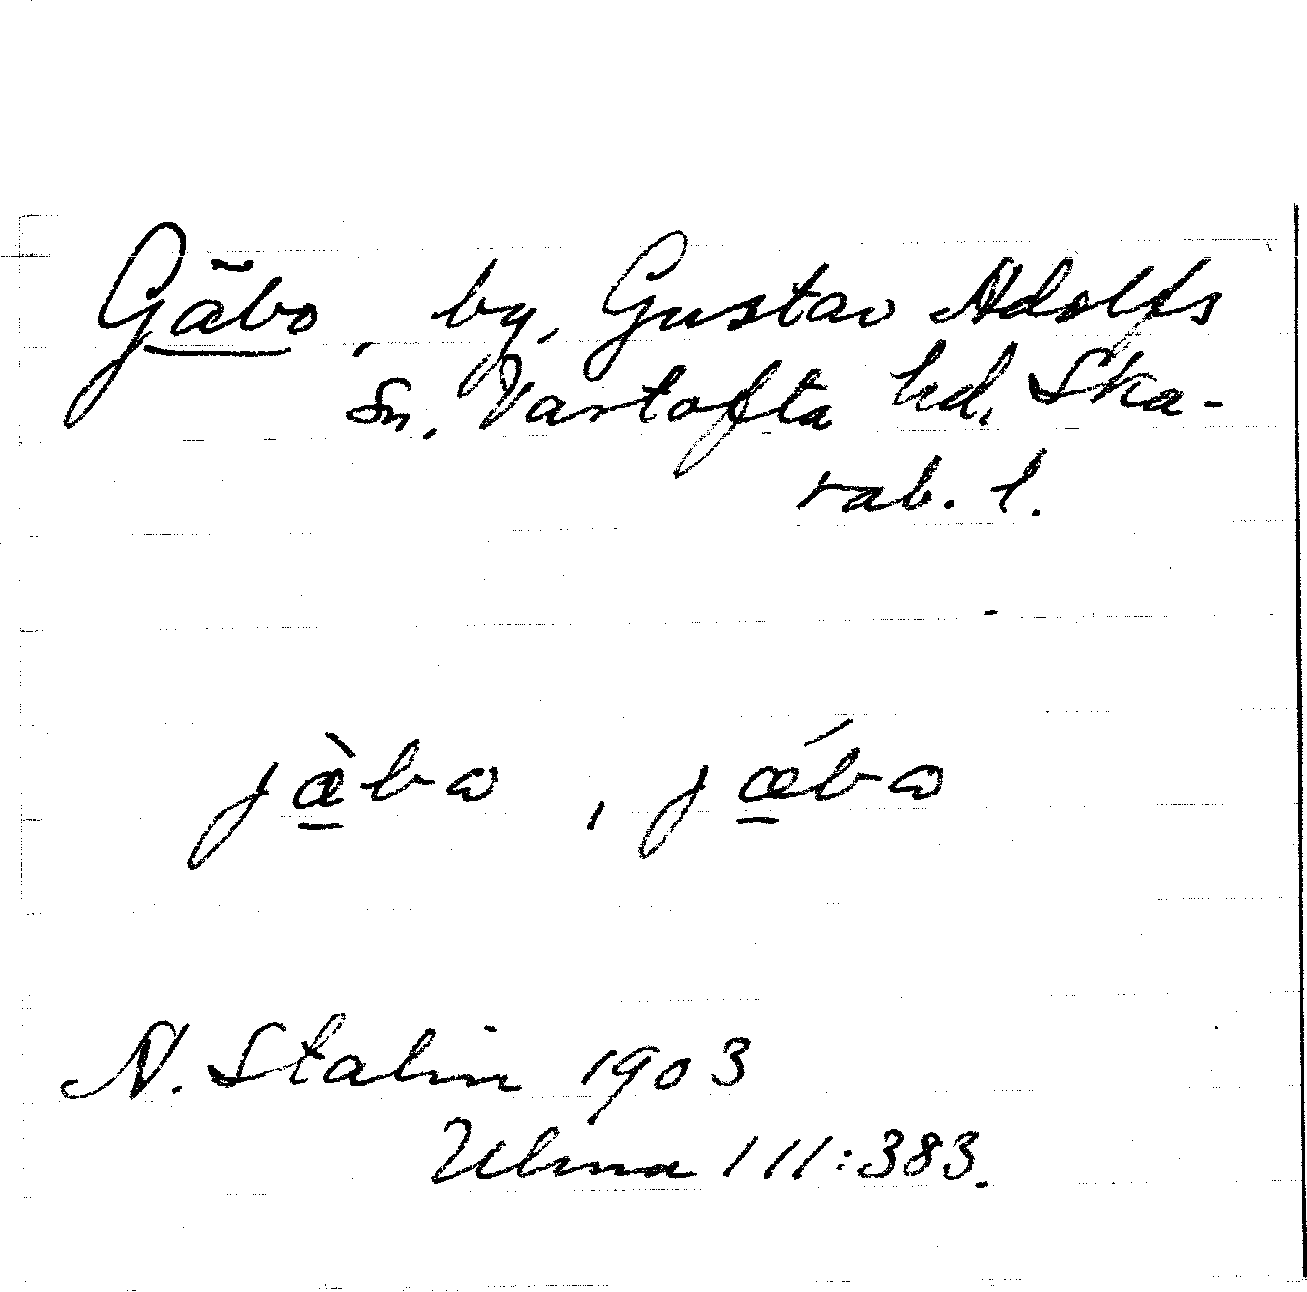 Gäbo, by, Gustav Adolfs
sn. Vartofta hd, Ska-
rab. l.
jæ̀bɷ, jǽbɷ
N. Stalin 1903
Ulma 111:383.